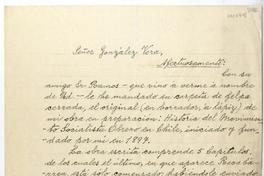 Señor González Vera,
Afectuosamente:
Con su
amigo Sr. Bunos - que vino a verme a nombre
de Ud. - le he mandado su carpeta de felpa
cerrada, el original (en borrador, a lápiz) de
mi obra en preparación: Historia del Movimien-
to Socialista Obrero en Chile, iniciado y fun-
dado por mi en 1899.
La obra escrita comprende 5 Capítulos,
de los cuales el último, en que aparece Recaba-
rren, está solo comenzado, habiéndole enviado